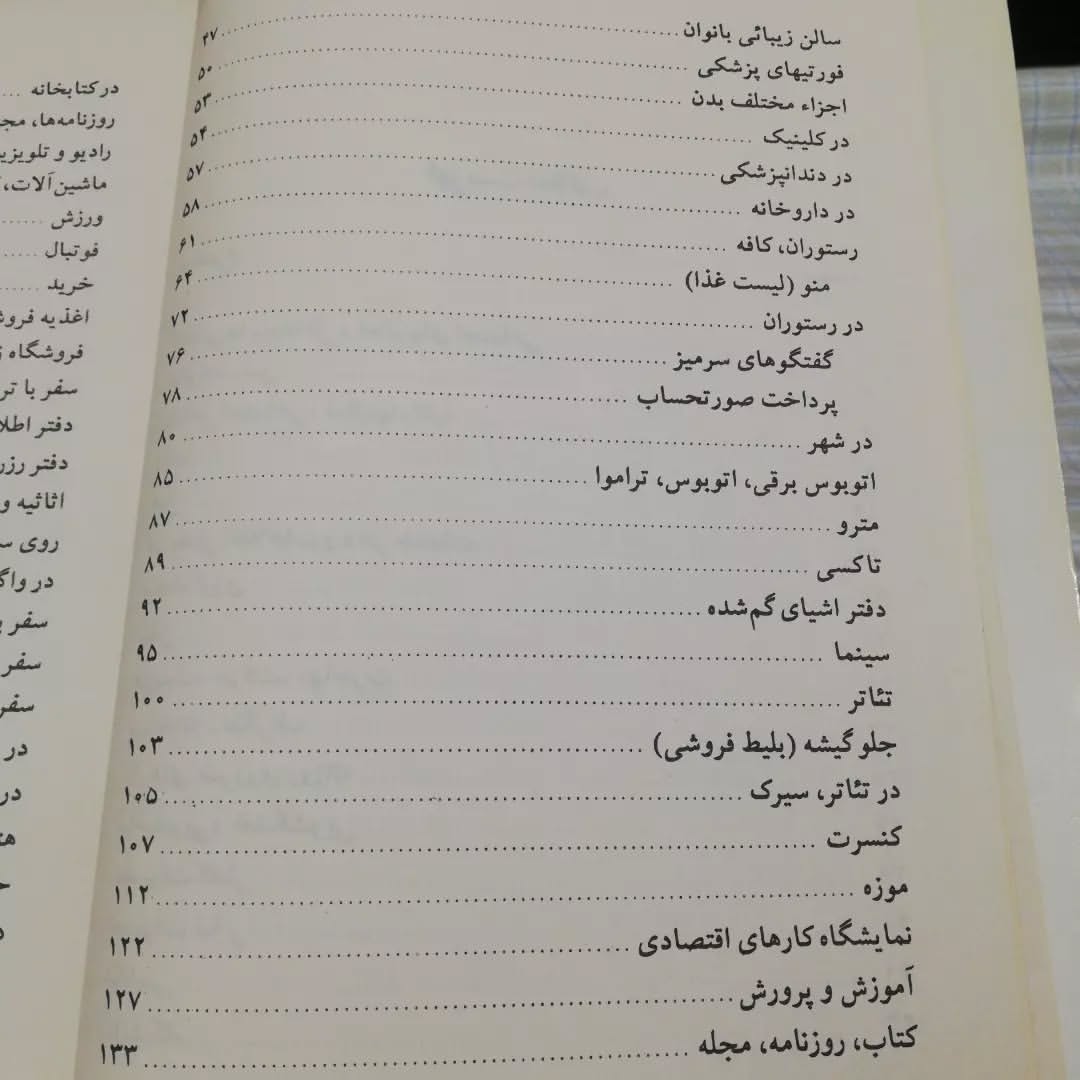 سالن زیبائی بانوان ........ ۴۷
فورتیهای پزشکی ........ ۵۰
اجزاء مختلف بدن ........ ۵۳
در کلینیک ........ ۵۴
در دندانپزشکی ........ ۵۷
در داروخانه ........ ۵۸
رستوران، کافه ........ ۶۱
منو (لیست غذا) ........ ۶۴
در رستوران ........ ۷۲
گفتگوهای سرمیز ........ ۷۶
پرداخت صورتحساب ........ ۷۸
در شهر ........ ۸۰
اتوبوس برقی، اتوبوس، تراموا ........ ۸۵
مترو ........ ۸۷
تاکسی ........ ۸۹
دفتر اشیای گم‌شده ........ ۹۲
سینما ........ ۹۵
تئاتر ........ ۱۰۰
جلو گیشه (بلیط فروشی) ........ ۱۰۳
در تئاتر، سیرک ........ ۱۰۵
کنسرت ........ ۱۰۷
موزه ........ ۱۱۲
نمایشگاه کارهای اقتصادی ........ ۱۲۲
آموزش و پرورش ........ ۱۲۷
کتاب، روزنامه، مجله ........ ۱۳۳
در کتابخانه ....
روزنامه‌ها،
رادیو و
ماشین‌آلات،
ورزش ........
فوتبال ......
خرید ........
اغذیه
فروشگاه
سفر با
دفتر
دفتر
اثاثیه و
روی
در
سفر
سفر
سفر
در
در